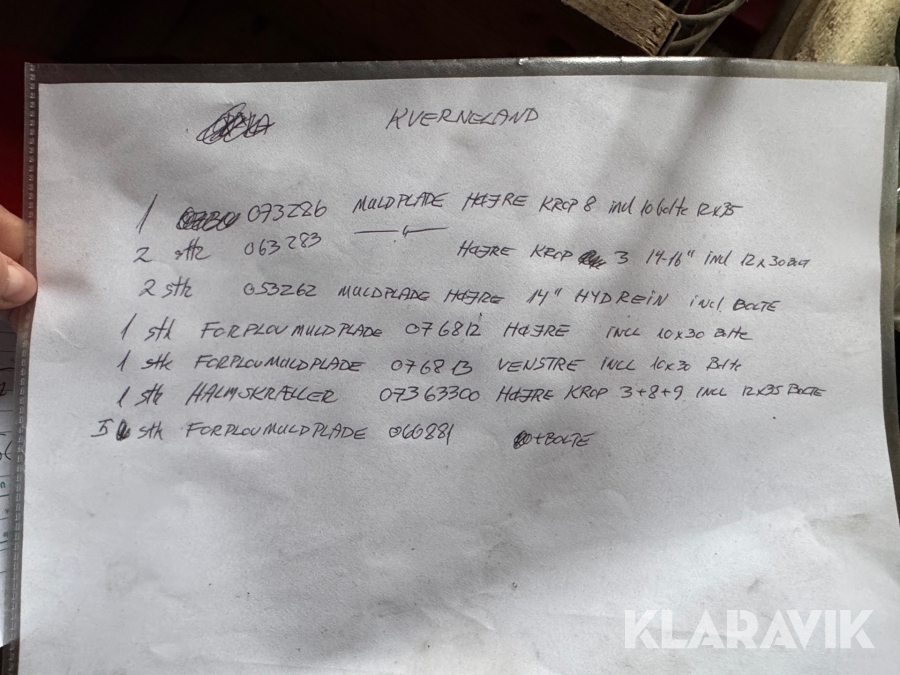 KVERNELAND
1 073286 MULDPLADE HØJRE KROP 8 incl 10 bolte 12x35
2 stk 063283 —〃— HØJRE KROP 3 14-16" incl 12x30 Bolt
2 stk 053262 MULDPLADE HØJRE 14" HYDREIN incl. BOLTE
1 stk FORPLOVMULDPLADE 076812 HØJRE INCL 10x30 Bolte
1 stk FORPLOVMULDPLADE 076813 VENSTRE INCL 10x30 Bolte
1 stk HALMSKRÆLLER 07363300 HØJRE KROP 3+8+9 INCL 12x35 BOLTE
5 stk FORPLOVMULDPLADE 066881 +BOLTE
KLARAVIK